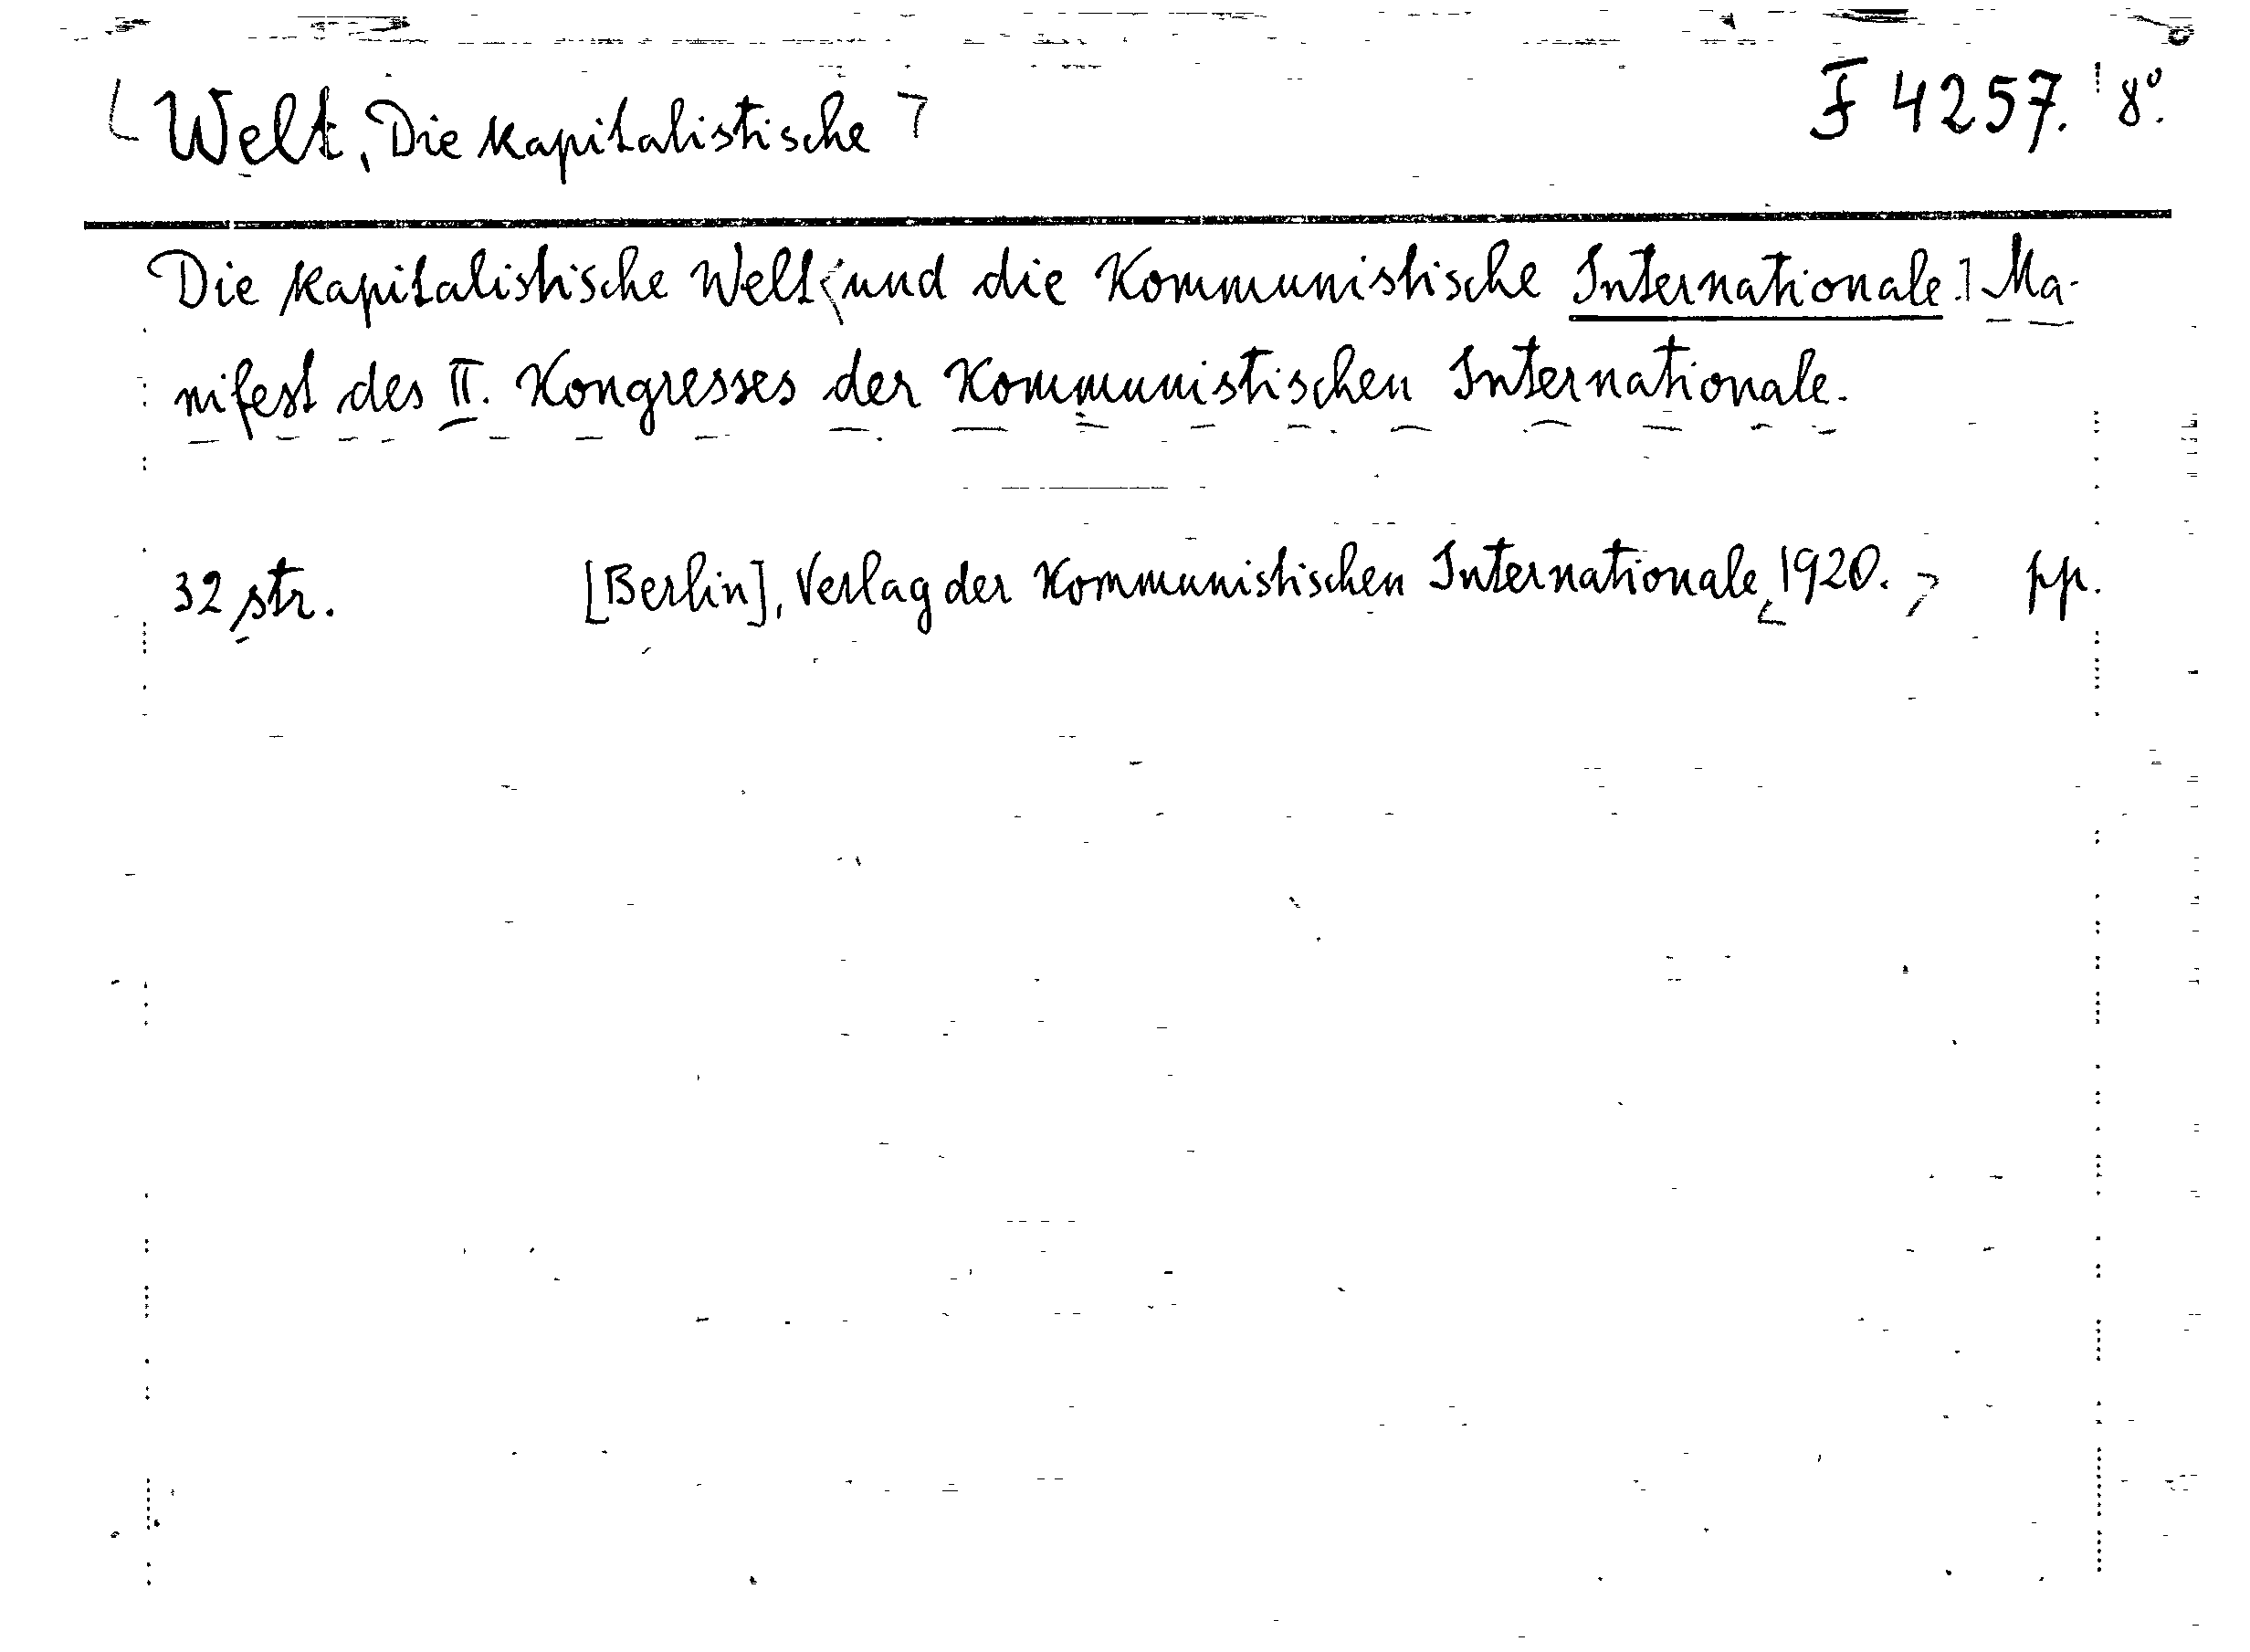 Welt, Die kapitalistische F 4257. 8°.
Die kapitalistische Welt und die Kommunistische Internationale. Ma-
nifest des II. Kongresses der Kommunistischen Internationale.
32 str. [Berlin], Verlag der Kommunistischen Internationale, 1920. pp.